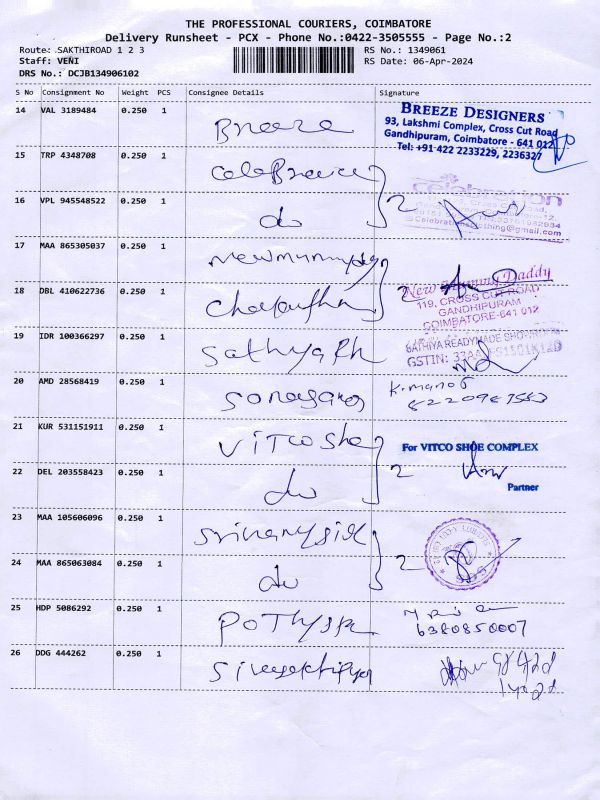 THE PROFESSIONAL COURIERS, COIMBATORE
Delivery Runsheet - PCX - Phone No.:0422-3505555 - Page No.:2
Route: SAKTHIROAD 1 2 3
RS No.: 1349061
Staff: VENI
RS Date: 06-Apr-2024
DRS No.: DCJB134906102
S No Consignment No Weight PCS Consignee Details Signature
14 VAL 3189484 0.250 1 Breeze
BREEZE DESIGNERS
93, Lakshmi Complex, Cross Cut Road
Gandhipuram, Coimbatore - 641 012
Tel: +91 422 2233229, 2236327
15 TRP 4348708 0.250 1
16 VPL 945548522 0.250 1 do 2
celebration
17 MAA 865305037 0.250 1
18 DBL 410622736 0.250 1 2
New Mummy Daddy
119, CROSS CUT ROAD
GANDHIPURAM
COIMBATORE-641 012
19 IDR 100366297 0.250 1 Sathya
SATHYA READYMADE
GSTIN:
20 AMD 28568419 0.250 1
K. Manoj
21 KUR 531151911 0.250 1 VITCO Shoe
For VITCO SHOE COMPLEX
22 DEL 203558423 0.250 1 do 2
Partner
23 MAA 105606096 0.250 1
24 MAA 865063084 0.250 1 do 2
25 HDP 5086292 0.250 1 POTHYS
6380850007
26 DDG 444262 0.250 1